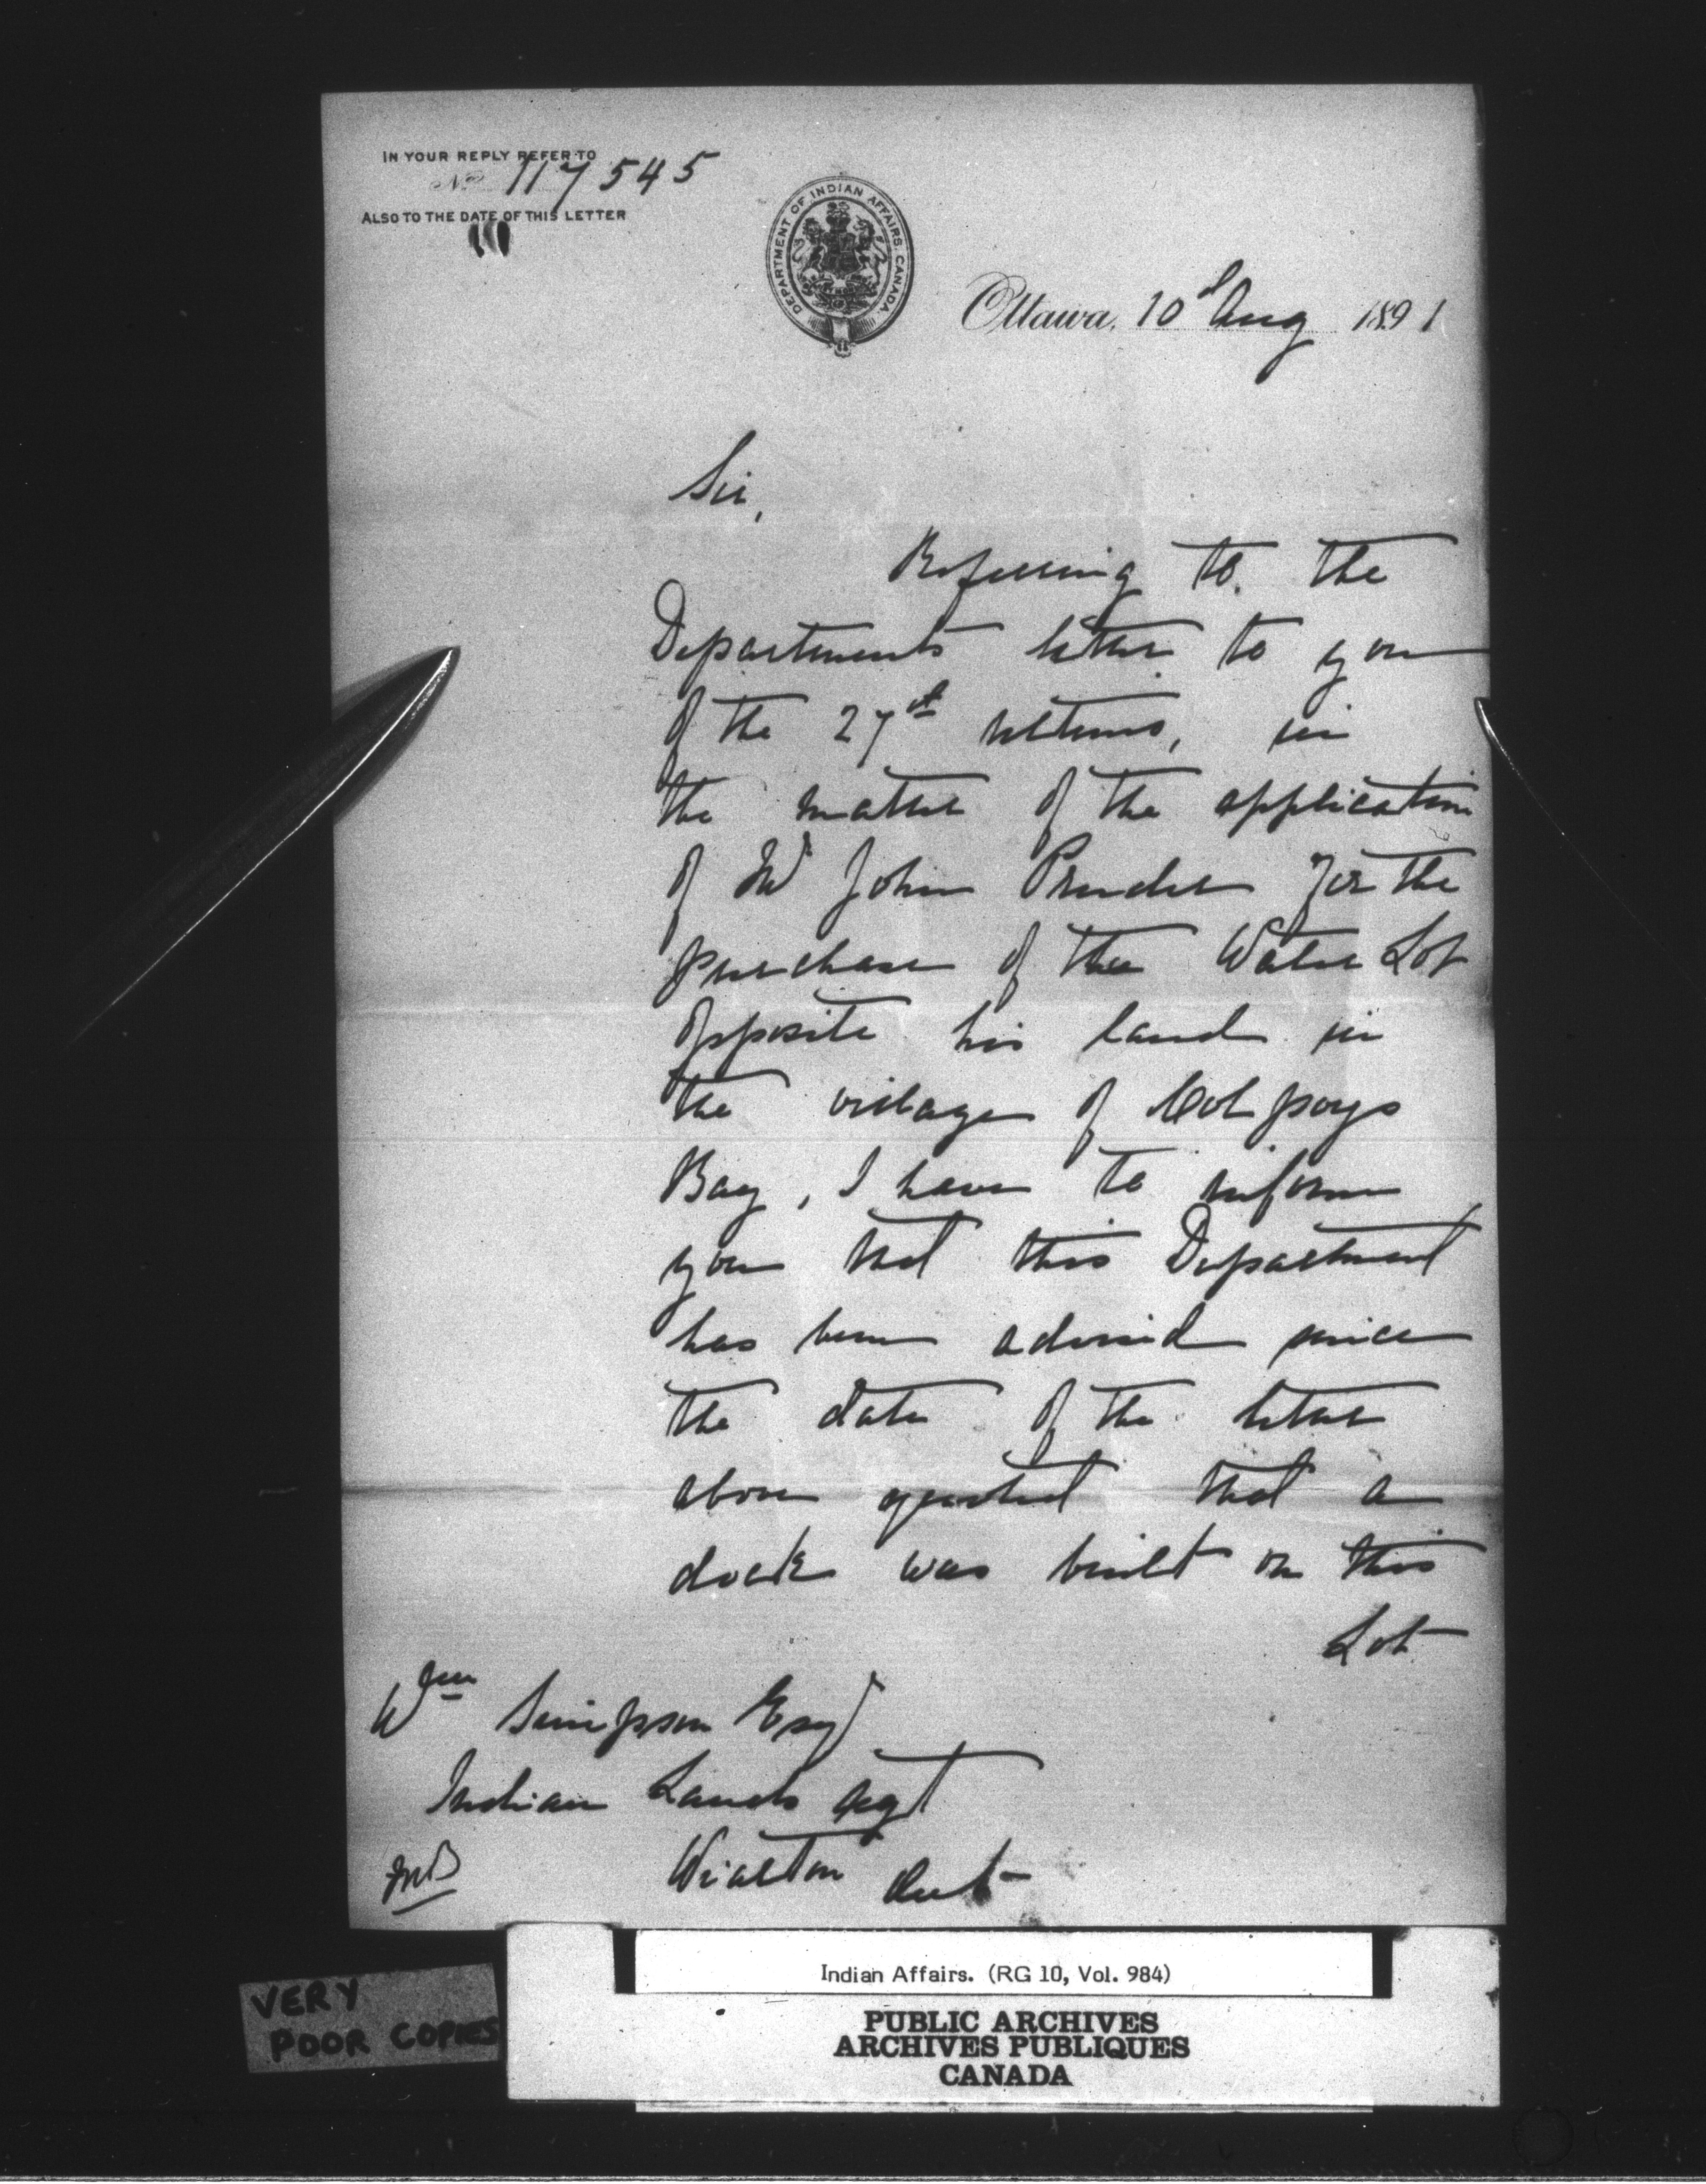 IN YOUR REPLY REFER TO
No 117545
ALSO TO THE DATE OF THIS LETTER
DEPARTMENT OF INDIAN AFFAIRS. CANADA.
Ottawa, 10th Aug 1891
Sir,
Referring to the
Departments letter to you
of the 27th ultimo, in
the matter of the application
of Mr John for the
purchase of the Water Lot
opposite his land in
the village of Colpoys
Bay, I have to inform
you that this Department
has been advised since
the date of the letter
above quoted that a
dock was built on this
Lot
Wm Simpson Esq
Indian Lands Agt
Wiarton Ont
VERY
POOR COPIES
Indian Affairs. (RG 10, Vol. 984)
PUBLIC ARCHIVES
ARCHIVES PUBLIQUES
CANADA